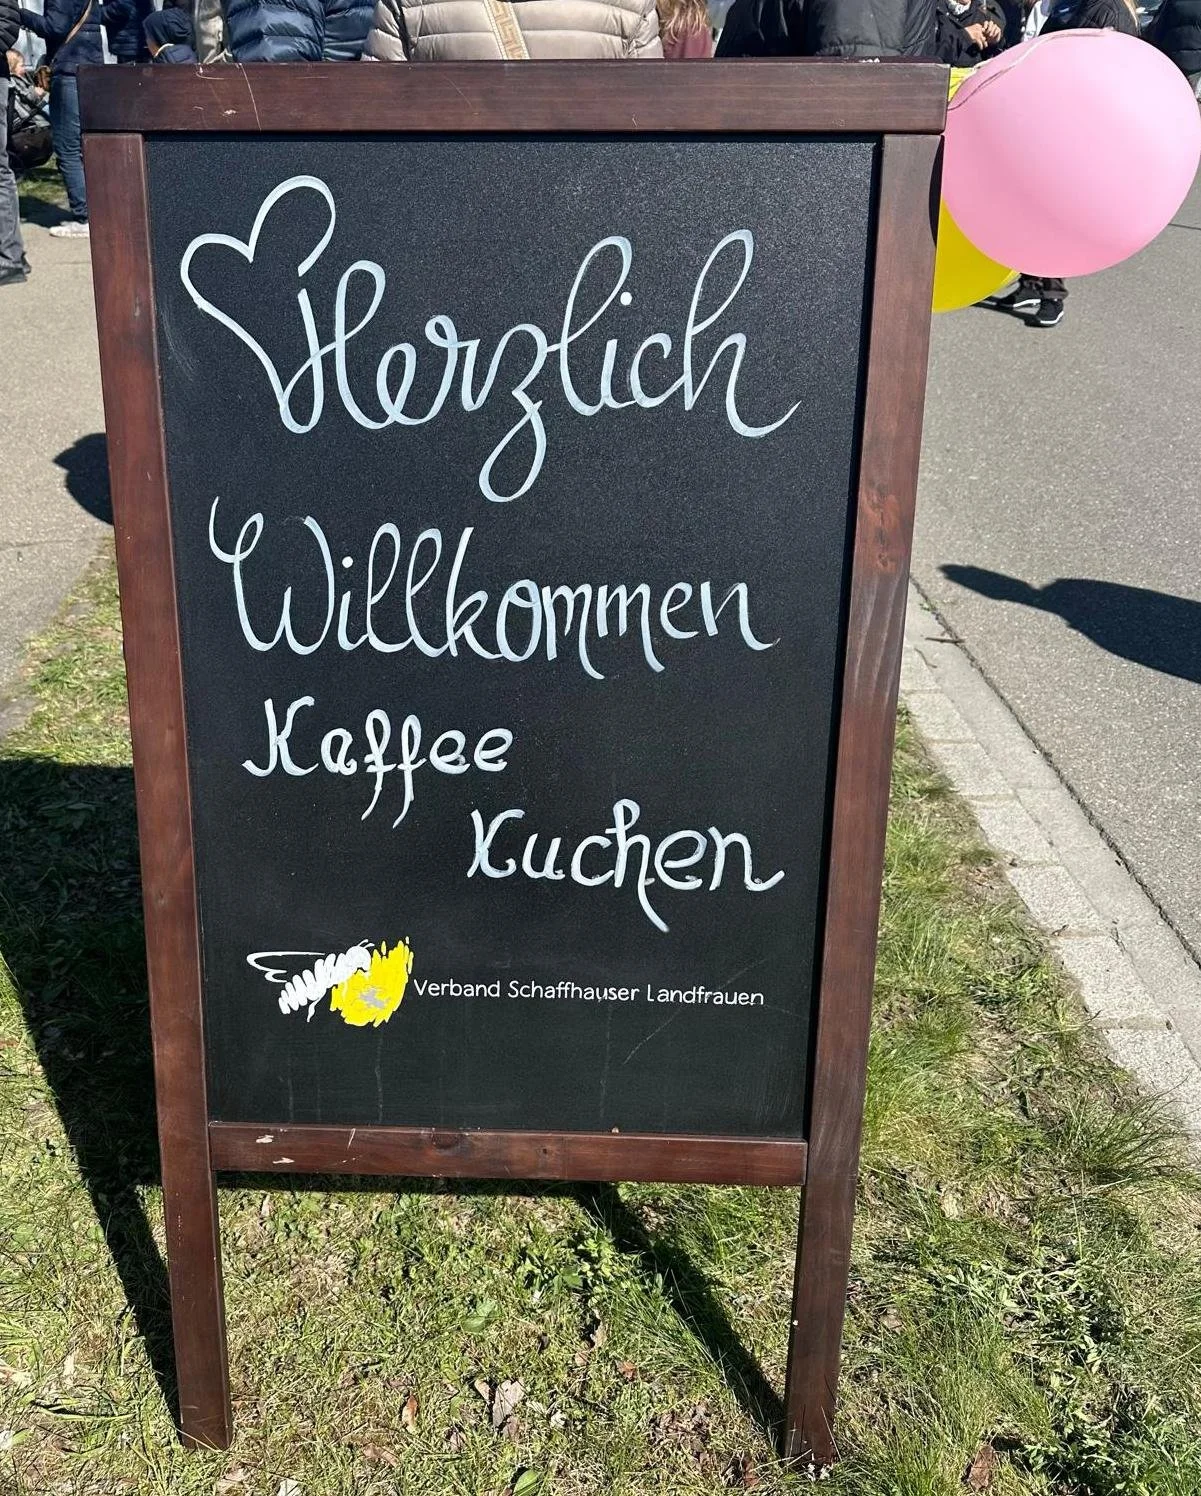 Herzlich
Willkommen
Kaffee
Kuchen
Verband Schaffhauser Landfrauen